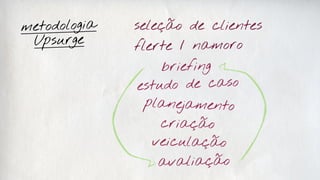 metodologia
Upsurge
seleção de clientes
flerte / namoro
briefing
estudo de caso
planejamento
criação
veiculação
avaliação